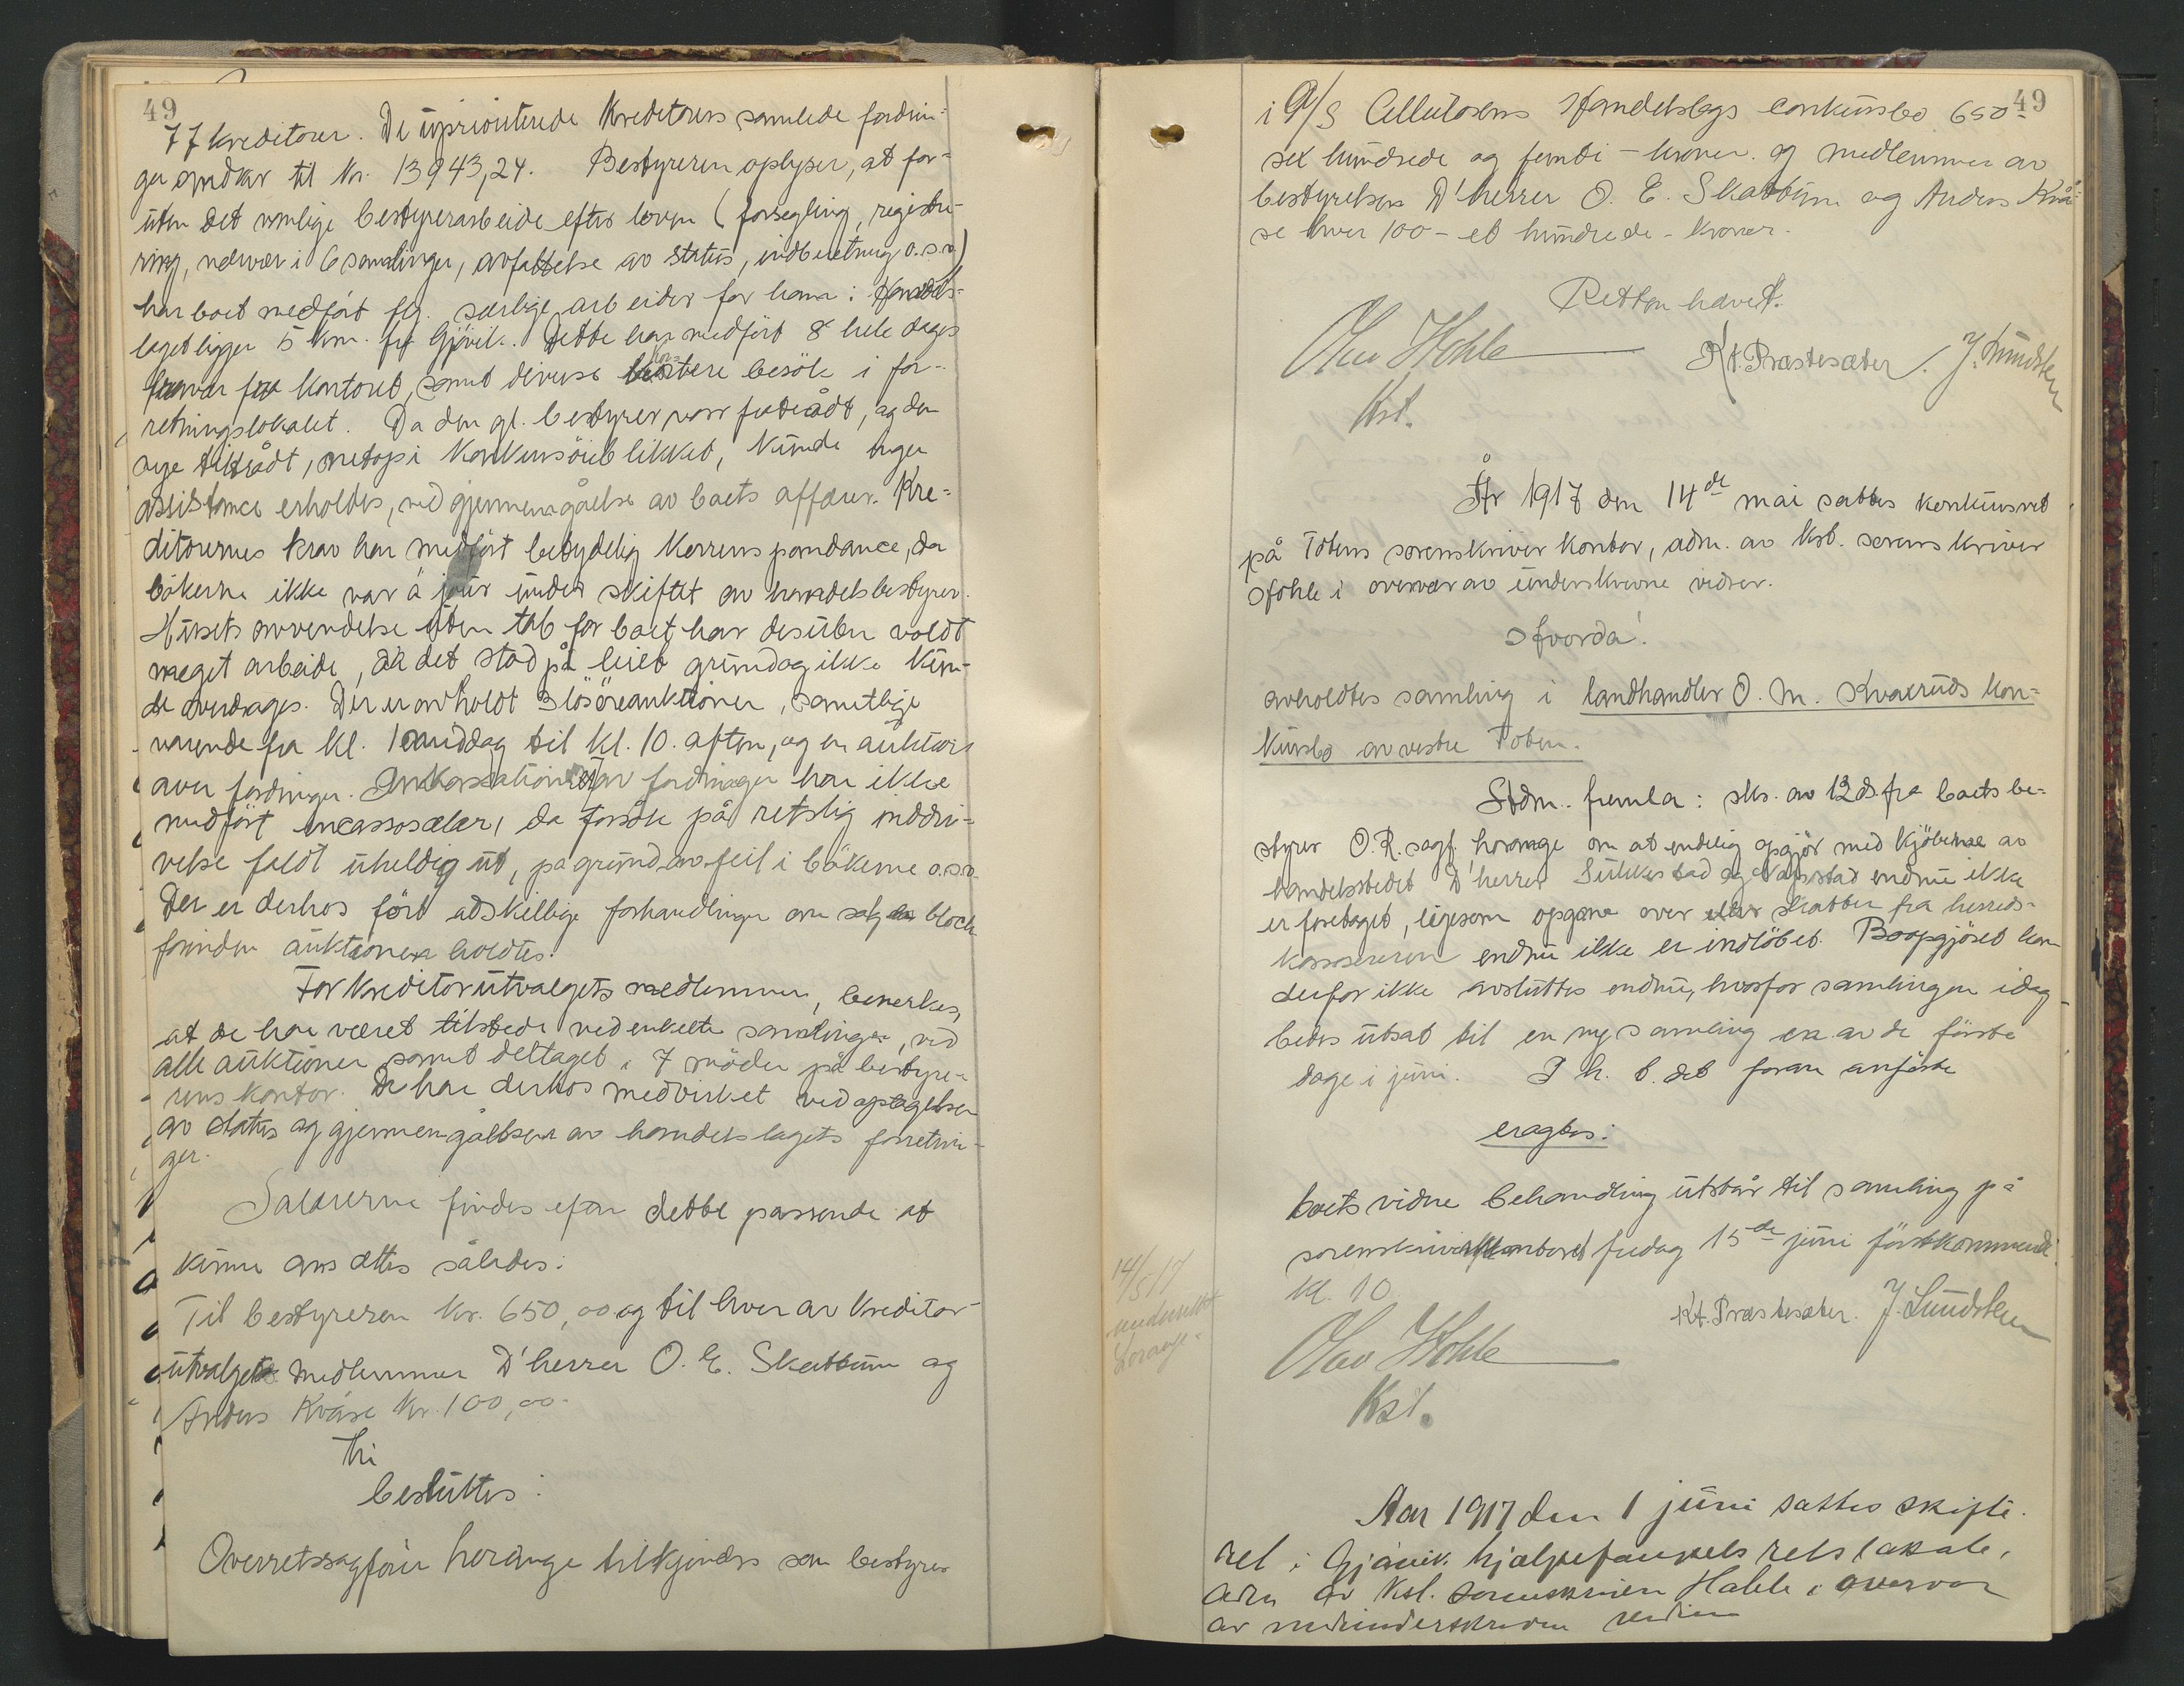 49
77 kreditorer. De uprioriterede kreditorers samlede fordrin-
ger androg til kr. 13943,24. Bestyreren oplyser, at for-
uten det vanlige bestyrerarbeide efter loven (forsegling, registre-
ring, nærvær i 6 samlinger, avfattelse av status, indberetning o.s.v.)
har boet medført flg. særlige arbeider for ham: Handels-
laget ligger 5 km. fra Gjövik. Dette har medfört 8 hele dages
fravær fra kontoret, samt diverse kortere besök i for-
retningslokalet. Da den gl. bestyrer var fratraadt, og den
nye tiltrådt, netop i konkursöieblikket, kunde ingen
assistance erholdes, ved gjennemgåelse av boets affærer. Kre-
ditorernes krav har medfört betydelig korrenspondance, da
bökerne ikke var à jour under skiftet av handelsbestyrer.
Husets anvendelse uten tab for boet har desuten voldt
meget arbeide, da det stod på leiet grund og ikke kun-
de overdrages. Der er avholdt 3 lösöreauktioner, samtlige
varende fra kl. 1 middag til kl. 10. aften, og en auktion
over fordringer. Inkassation av fordringer har ikke
medfört incassosalær, da forsök på retslig inddri-
velse faldt uheldig ut, på grund av feil i bökerne o.s.v.
Der er derhos fört adskillige forhandlinger om salg en bloch
forinden auktionen holdtes.
For kreditorutvalgets medlemmer, bemerkes,
at de har været tilstede ved enkelte samlinger, ved
alle auktioner samt deltaget i 7 möder på bestyre-
rens kontor. De har derhos medvirket ved optagelsen
av status og gjennemgåelsen av handelslagets forretnin-
ger.
Salærerne findes efter dette passende at
kunne ansættes således:
Til bestyreren kr. 650,00 og til hver av kreditor-
utvalgets medlemmer D'herrer O. E. Skattum og
Anders Kvåse kr. 100,00.
Thi
besluttes:
Overretssagförer Horånge tilkjendes som bestyrer
49
i A/S Cellulosens Handelslags conkursbo 650-
sex hundrede og femti - kroner. og medlemmer av
bestyrelsen D'herrer O. E. Skattum og Anders Kvå-
se hver 100 - et hundrede - kroner.
Retten hævet.
Olav Hohle
Kst.
Kt. Præstesæter. J. Lundsten
År 1917 den 14de mai sattes konkursret
på Totens sorenskriverkontor, adm. av kst. sorenskriver
Hohle i overvær av underskrevne vidner.
Hvorda!
avholdtes samling i landhandler O. M. Kværuds kon-
kursbo av vestre Toten.
Adm. fremla: skr. av 12 ds. fra boets be-
styrer O.R. sagf. Horånge om at endelig opgjör med kjöberne av
handelsstedet D'herrer Sulkestad og endnu ikke
er foretaget, ligesom opgave over skatter fra herreds-
kassereren endnu ikke er indlöbet. Boopgjöret kan
derfor ikke avsluttes endnu, hvorfor samlingen idag
bedes utsat til en ny samling en av de förste
dage i juni. I h. t. det foran anförte
eragtes:
boets videre behandling utstår til samling på
sorenskriverkontoret fredag 15de juni förstkommende
kl. 10
14/5/17
underrettet
Horånge
Olav Hohle
Kst.
Kt. Præstesæter. J. Lundsten
Aar 1917 den 1 juni sattes skifte-
ret i Gjövik hjælpefængsels retslokale,
adm av Kst. sorenskriver Hohle i overvær
av nedenunderskrevne vidner